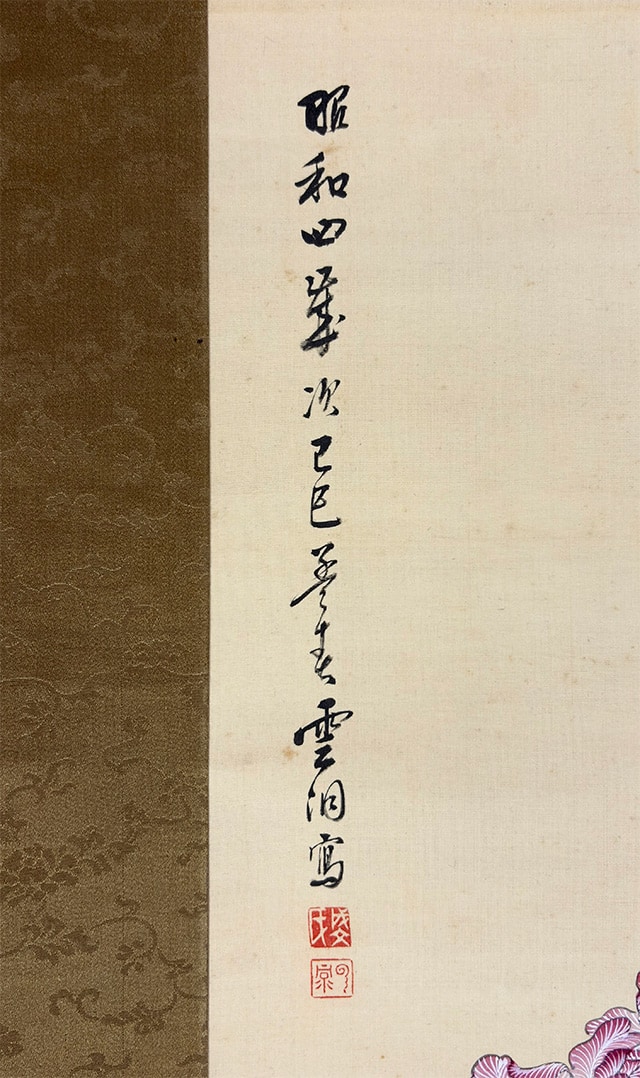 昭和四歳次己巳暮春雲洞寫